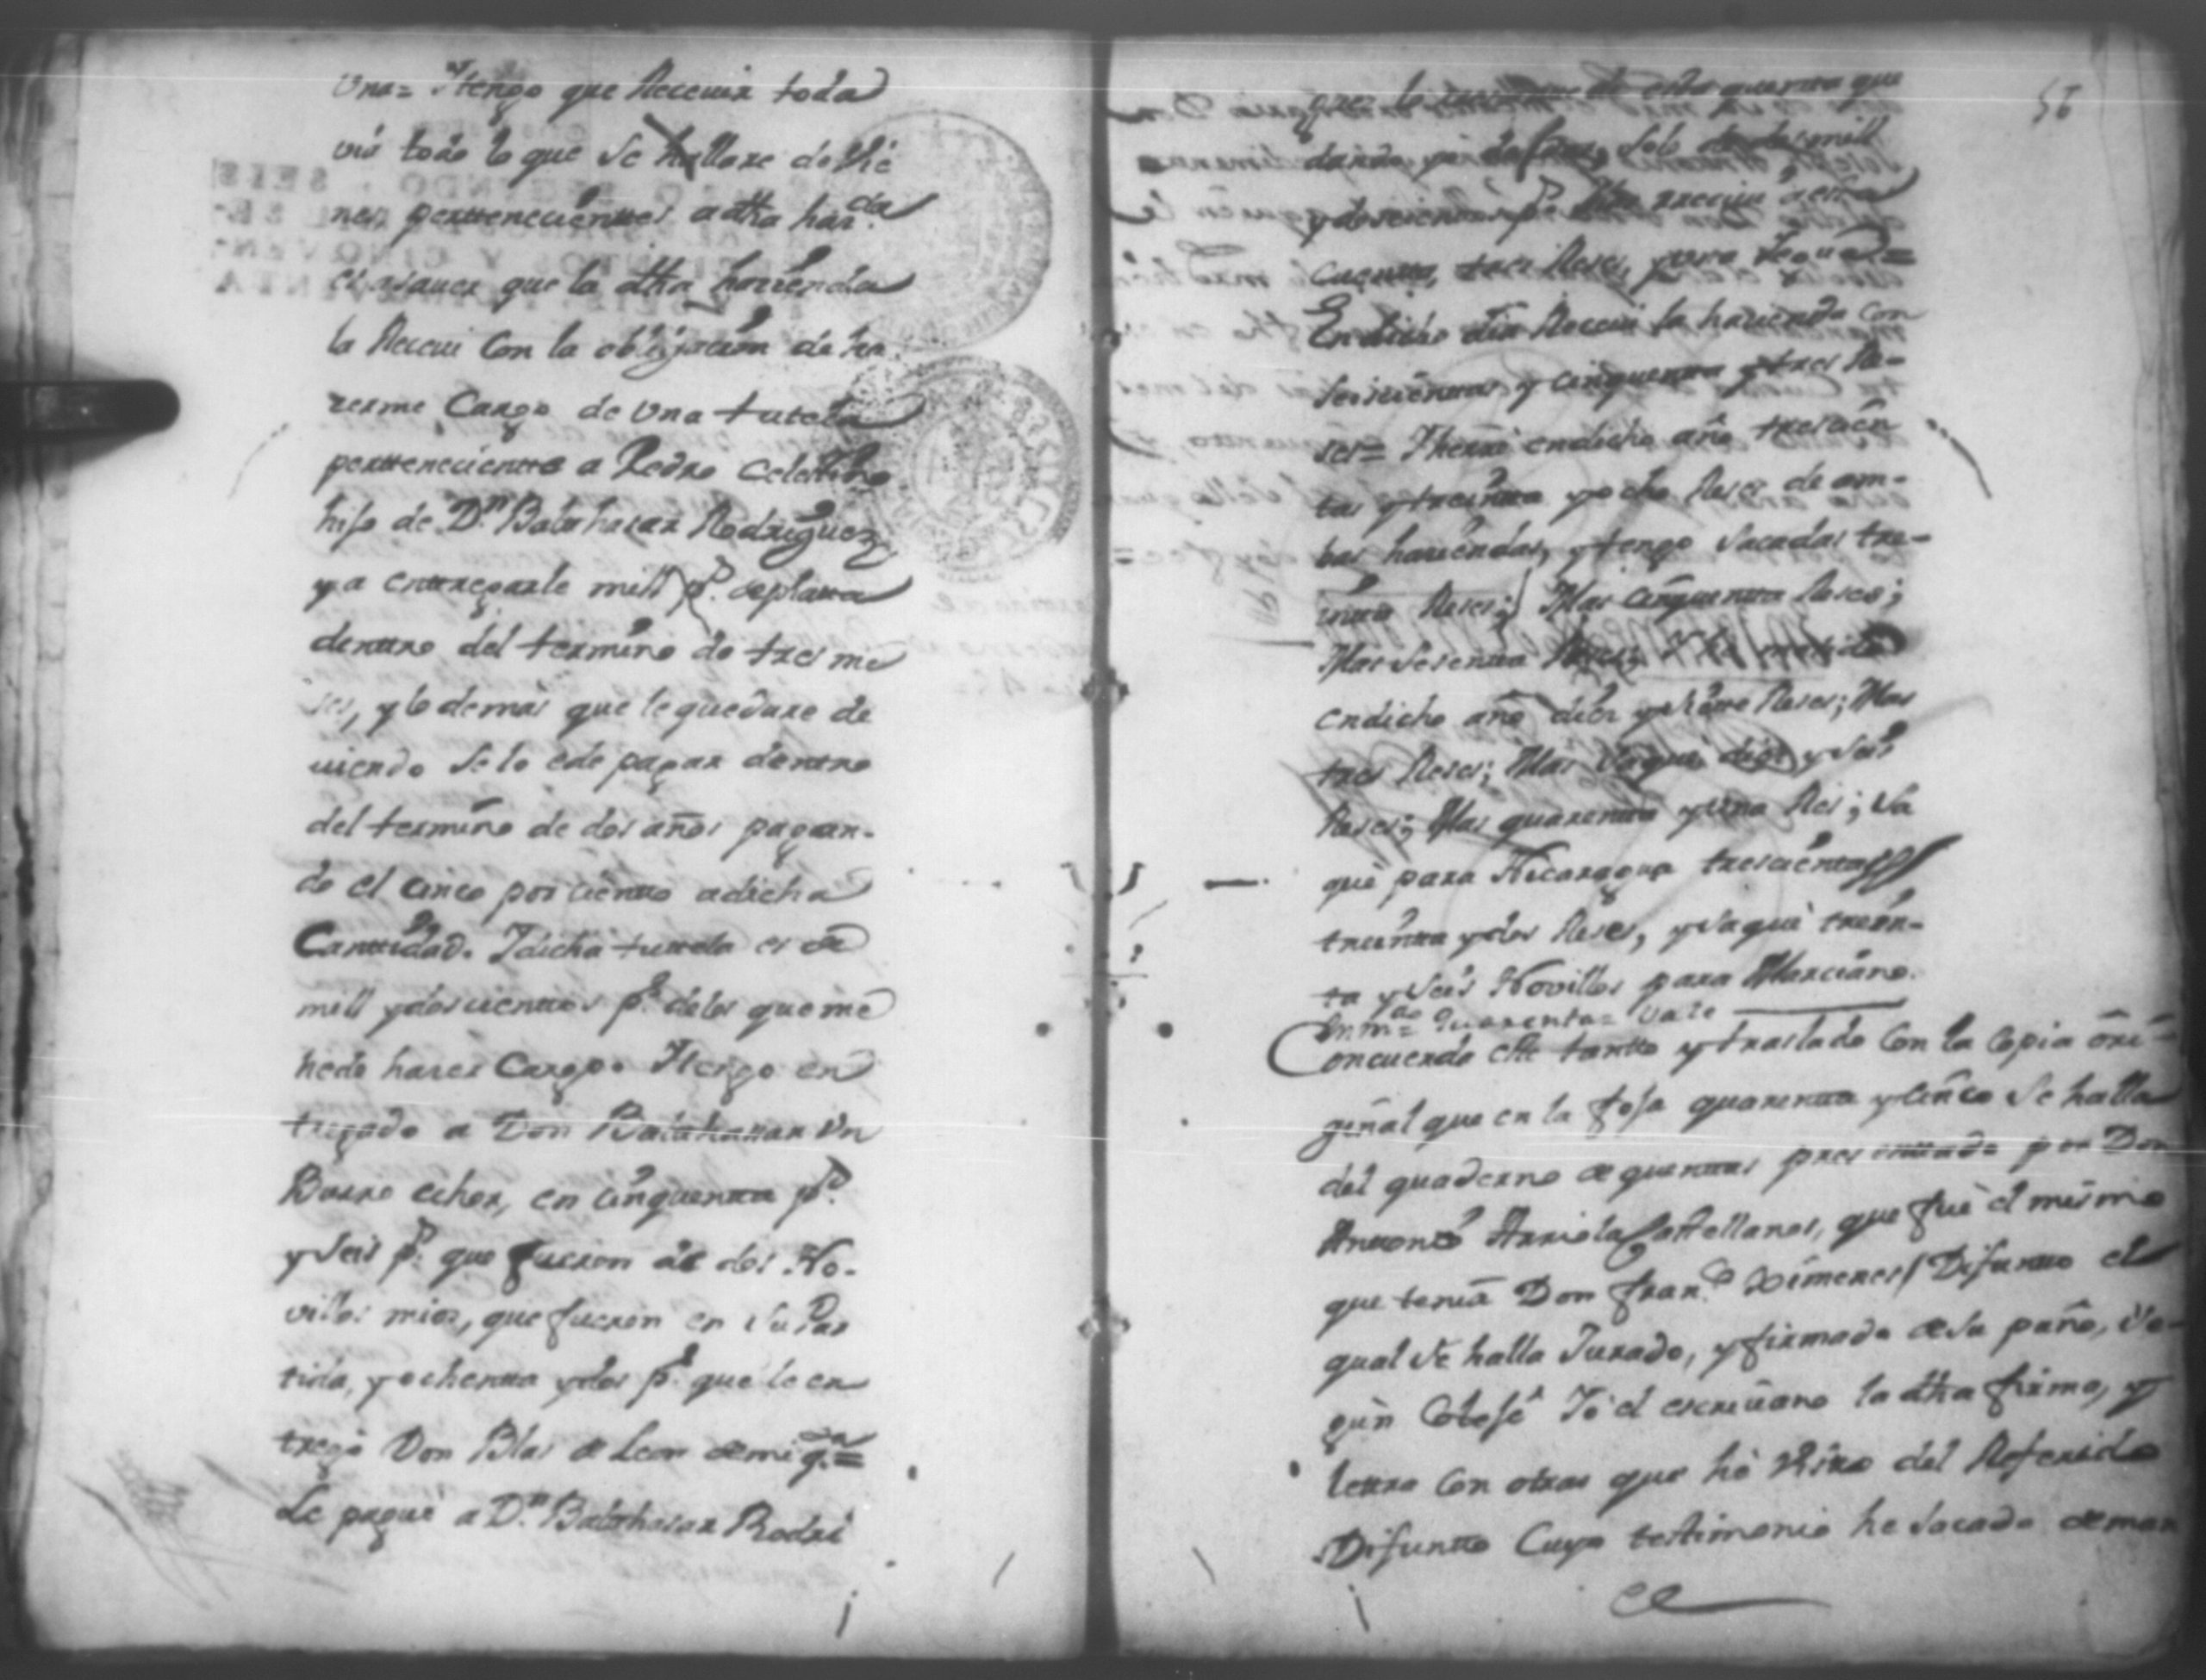 Una= Y tengo que Receuir toda
via todo lo que se hallare de vie
nes pertenecientes a dha haz.da
es asauer que la dha hacienda
la Receui Con la obligacion de ha
zerme Cargo de Una tutela
perttenecientte a Pedro Celestino
hijo de D.n Balthasar Rodriguez
y a enttregarle mill p.s de platta
denttro del termino de tres me
ses, y lo demas que le quedare de
uiendo se lo e de pagar denttro
del termino de dos años pagan-
do el cinco por cientto a dicha
Canttidad. Y dicha tuttela es de
mill y doscienttos p.s de los que me
he de hacer Cargo. Y tengo en
tregado a Don Balthasar Un
Burro echor, en cinquentta p.s
y seis p.s que fueron de dos No-
villos mios, que fueron en su Par
tida, y ochentta y dos p.s que le en
tregò Don Blas de Leon de mi q.ta=
Le pague a D.n Balthasar Rodri
56
de esta quentta que
dando solo mill
y doscienttos p.s
Cuentta, tres Reses, para
En dicho dia Receui la hacienda Con
seiscienttas y cinquentta y tres Re-
ses= Y herrè en dicho año trescien
tas y treintta y ocho Reses de am-
bas haciendas, y tengo sacadas tre-
intta Reses; Mas cinquentta Reses;
Mas sesentta Reses;
en dicho año diez y Reses; Mas
tres Reses; Mas saquè diez y seis
Reses; Mas quarentta y una Res; sa
què para Nicaragua trescienttas
treintta y dos Reses, y saquè trein-
ta y seis Novillos para Marciano.
Enm.do= Quarenta= Vale
Concuerda estte tantto y traslado Con la Copia ori-
ginal que en la foja quarentta y cinco se halla
del quaderno de quenttas presenttado por Don
Anttonio Arriola Castellanos, que fuè el mismo
que tenia Don Fran.co Ximenes Difuntto el
qual se halla Jurado, y firmado de su puño, se-
gun Cotejè Yo el escriuano la dha firma, y
lettra Con otras que hè visto del Referido
Difuntto Cuyo testimonio he sacado de man